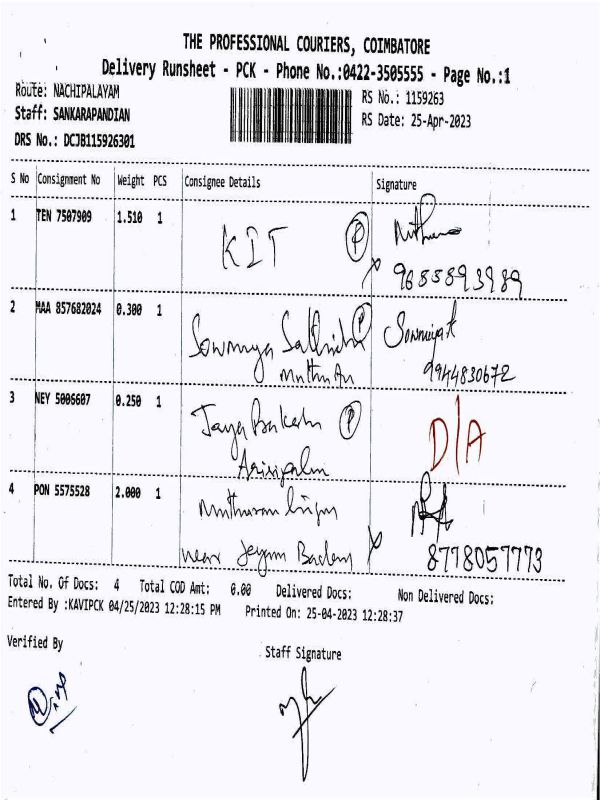 THE PROFESSIONAL COURIERS, COIMBATORE
Delivery Runsheet - PCK - Phone No.:0422-3505555 - Page No.:1
Route: NACHIPALAYAM
RS No.: 1159263
Staff: SANKARAPANDIAN
RS Date: 25-Apr-2023
DRS No.: DCJB115926301
S No Consignment No Weight PCS Consignee Details Signature
1 TEN 7507909 1.510 1
KIT P
9685893989
2 MAA 857682024 0.300 1
Sowmya P Sowmiya
9944830672
3 NEY 5006607 0.250 1
Jaya P D/A
4 PON 5575528 2.000 1
near 8778057773
Total No. Of Docs: 4 Total COD Amt: 0.00 Delivered Docs: Non Delivered Docs:
Entered By :KAVIPCK 04/25/2023 12:28:15 PM Printed On: 25-04-2023 12:28:37
Verified By
Staff Signature